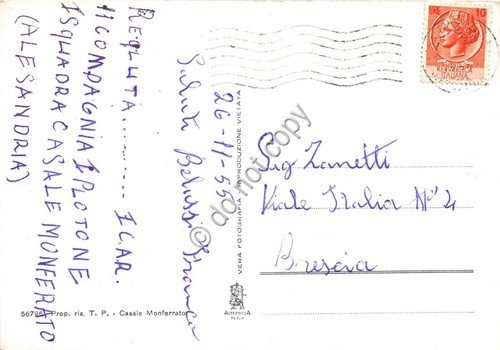 REPLUTA......... I CAR.
11 COMPAGNIA I PLOTONE
I SQUADRA CASALE MONFERRATO
(ALESANDRIA)
26-11-55
Saluti Belussi Franco
Sig Zanetti
Viale Italia Nº 4
Brescia
10
REPUBBLICA
ITALIANA
VERA FOTOGRAFIA RIPRODUZIONE VIETATA
56796 Prop. ris. T. P. - Casale Monferrato
ALTEROCCA
TERNI
do not copy